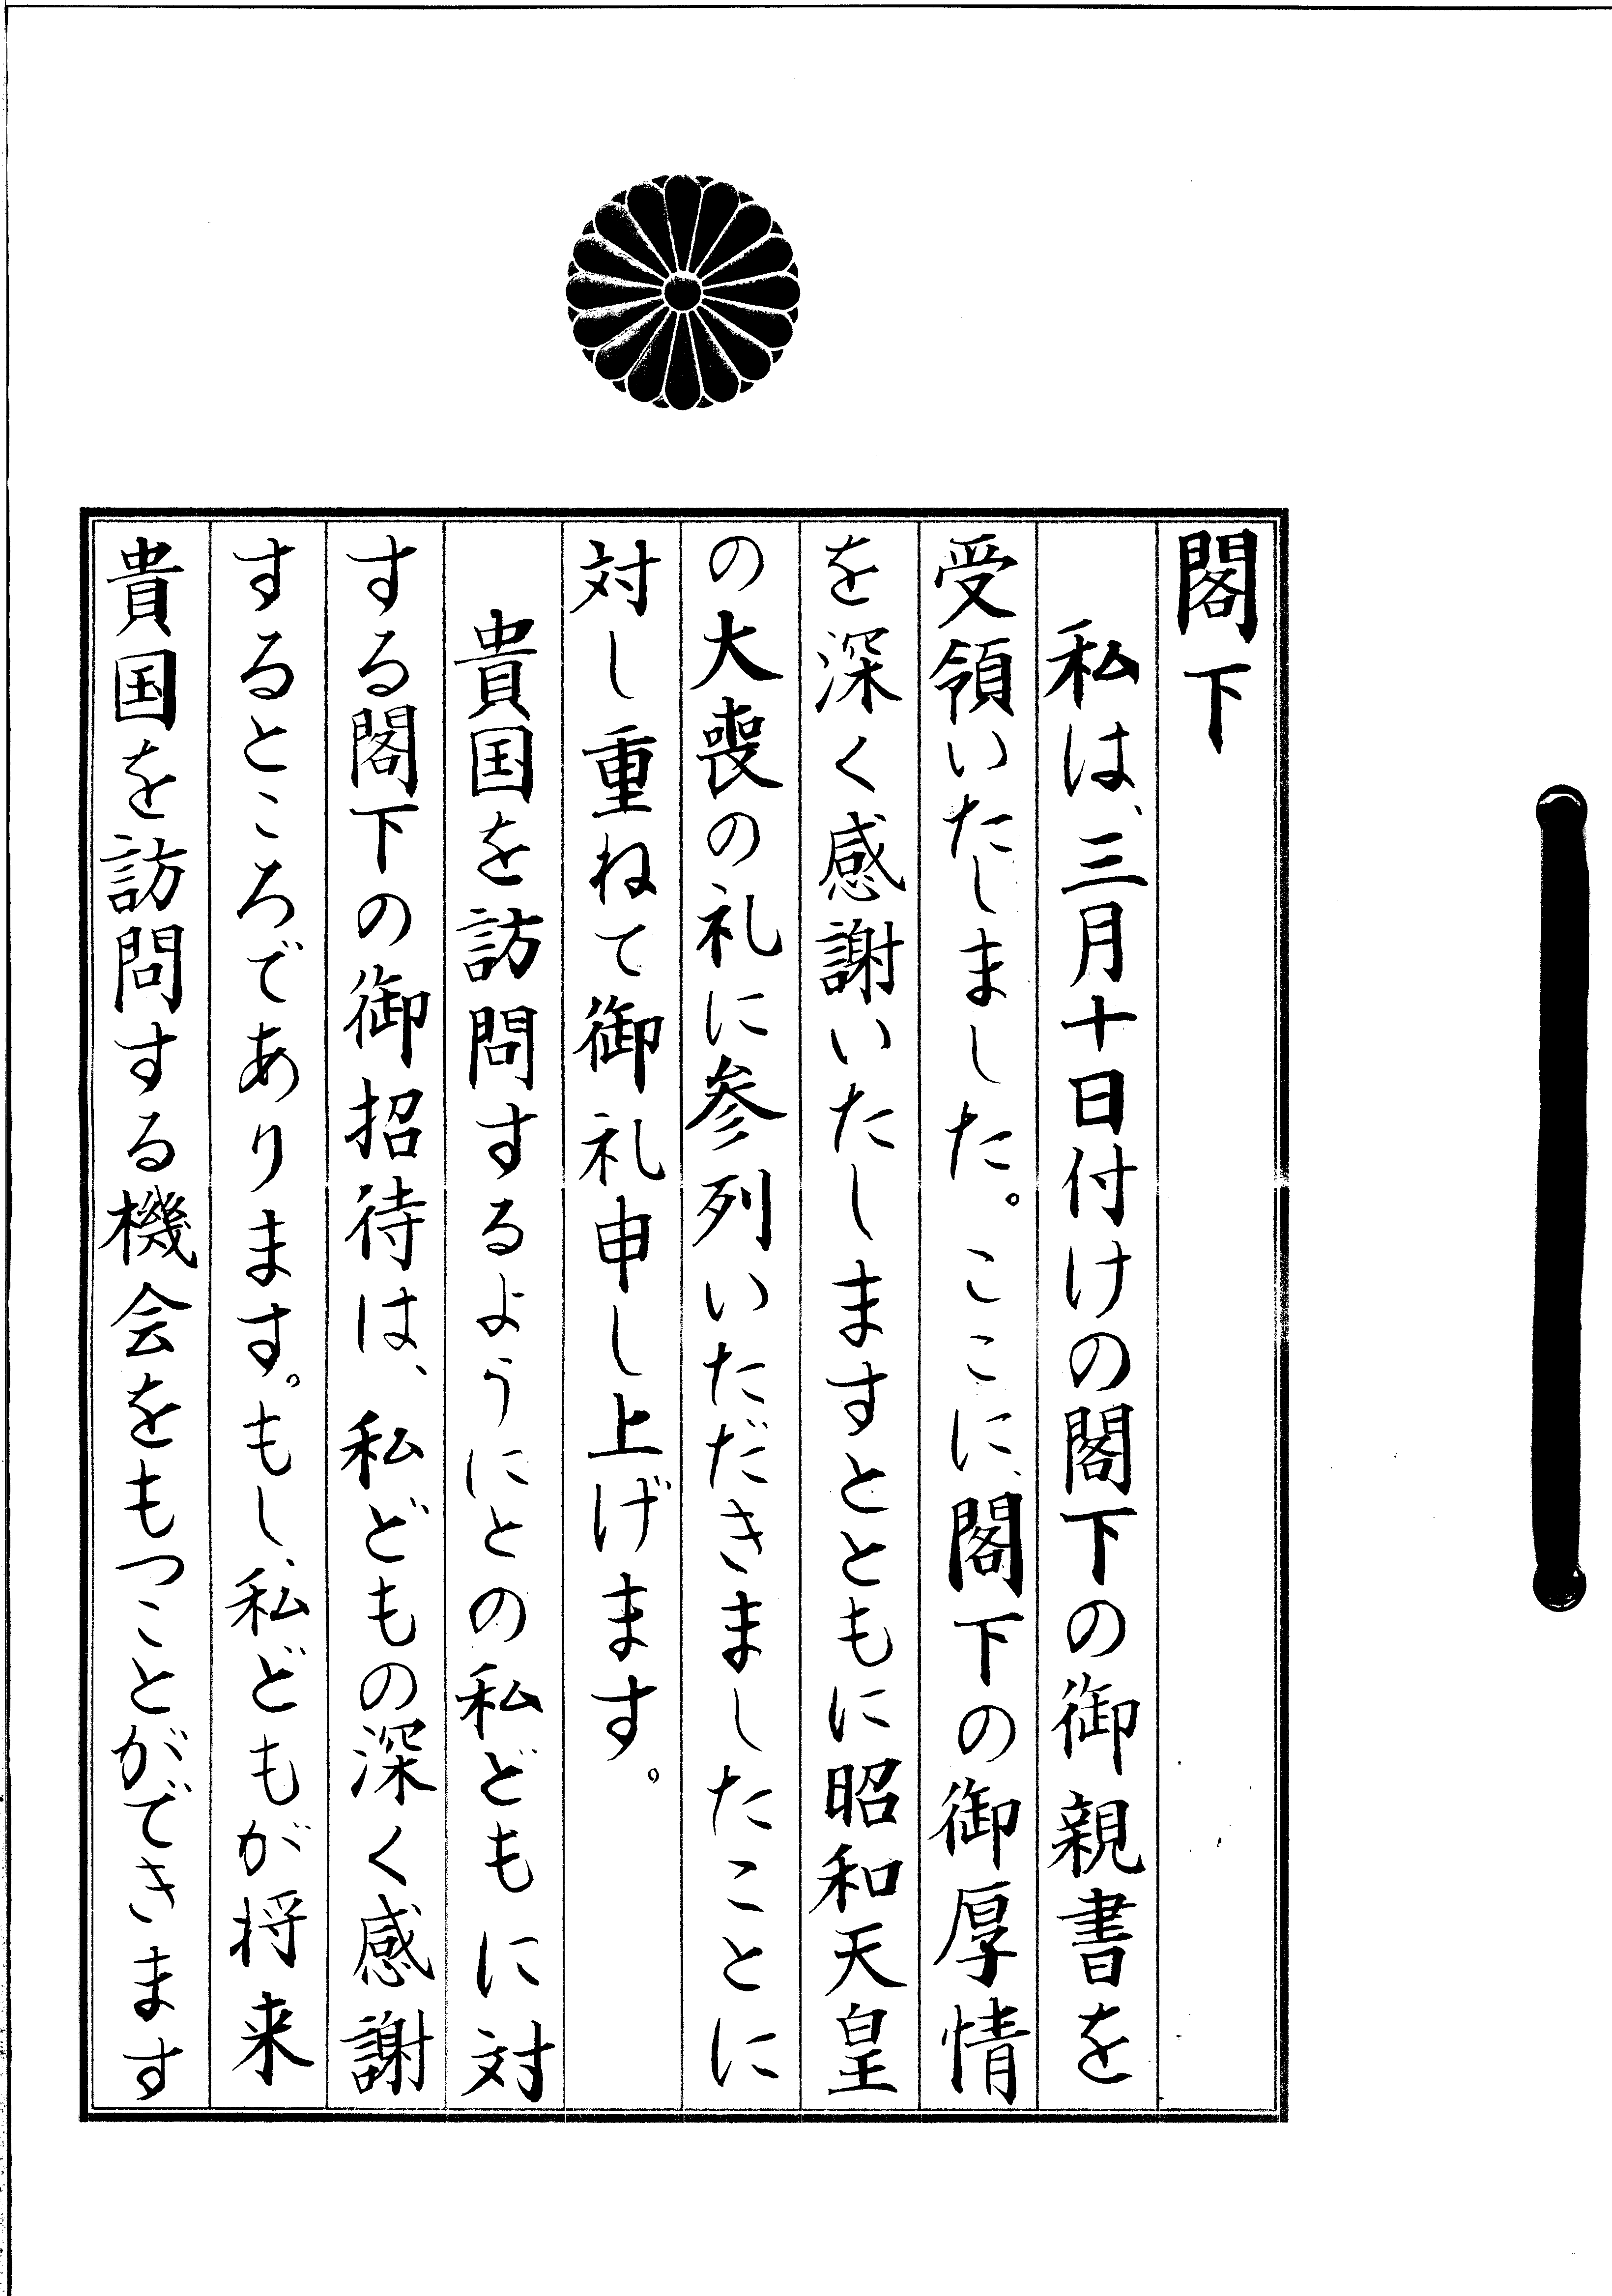 閣下
私は、三月十日付けの閣下の御親書を
受領いたしました。ここに、閣下の御厚情
を深く感謝いたしますとともに昭和天皇
の大喪の礼に参列いただきましたことに
対し重ねて御礼申し上げます。
貴国を訪問するようにとの私どもに対
する閣下の御招待は、私どもの深く感謝
するところであります。もし、私どもが将来
貴国を訪問する機会をもつことができます